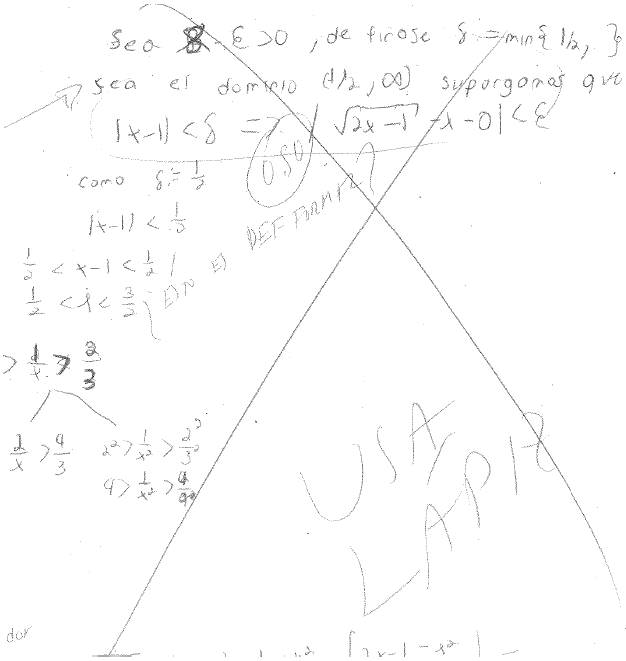 Sea ε>0, de finase δ = min{1/2, }
sea el dominio (1/2, ∞) supongamos que
|x-1| < δ => | √2x-1 - x - 0| < ε
0.50
como δ = 1/2
|x-1| < 1/2
1/2 < x-1 < 1/2
1/2 < x < 3/2
DEF
> 1/x > 2/3
2/x > 4/3 2² > 1/x² > 2²/3²
4 > 1/x² > 4/9
USA
LAPIZ
dor
|2x-1-x²|